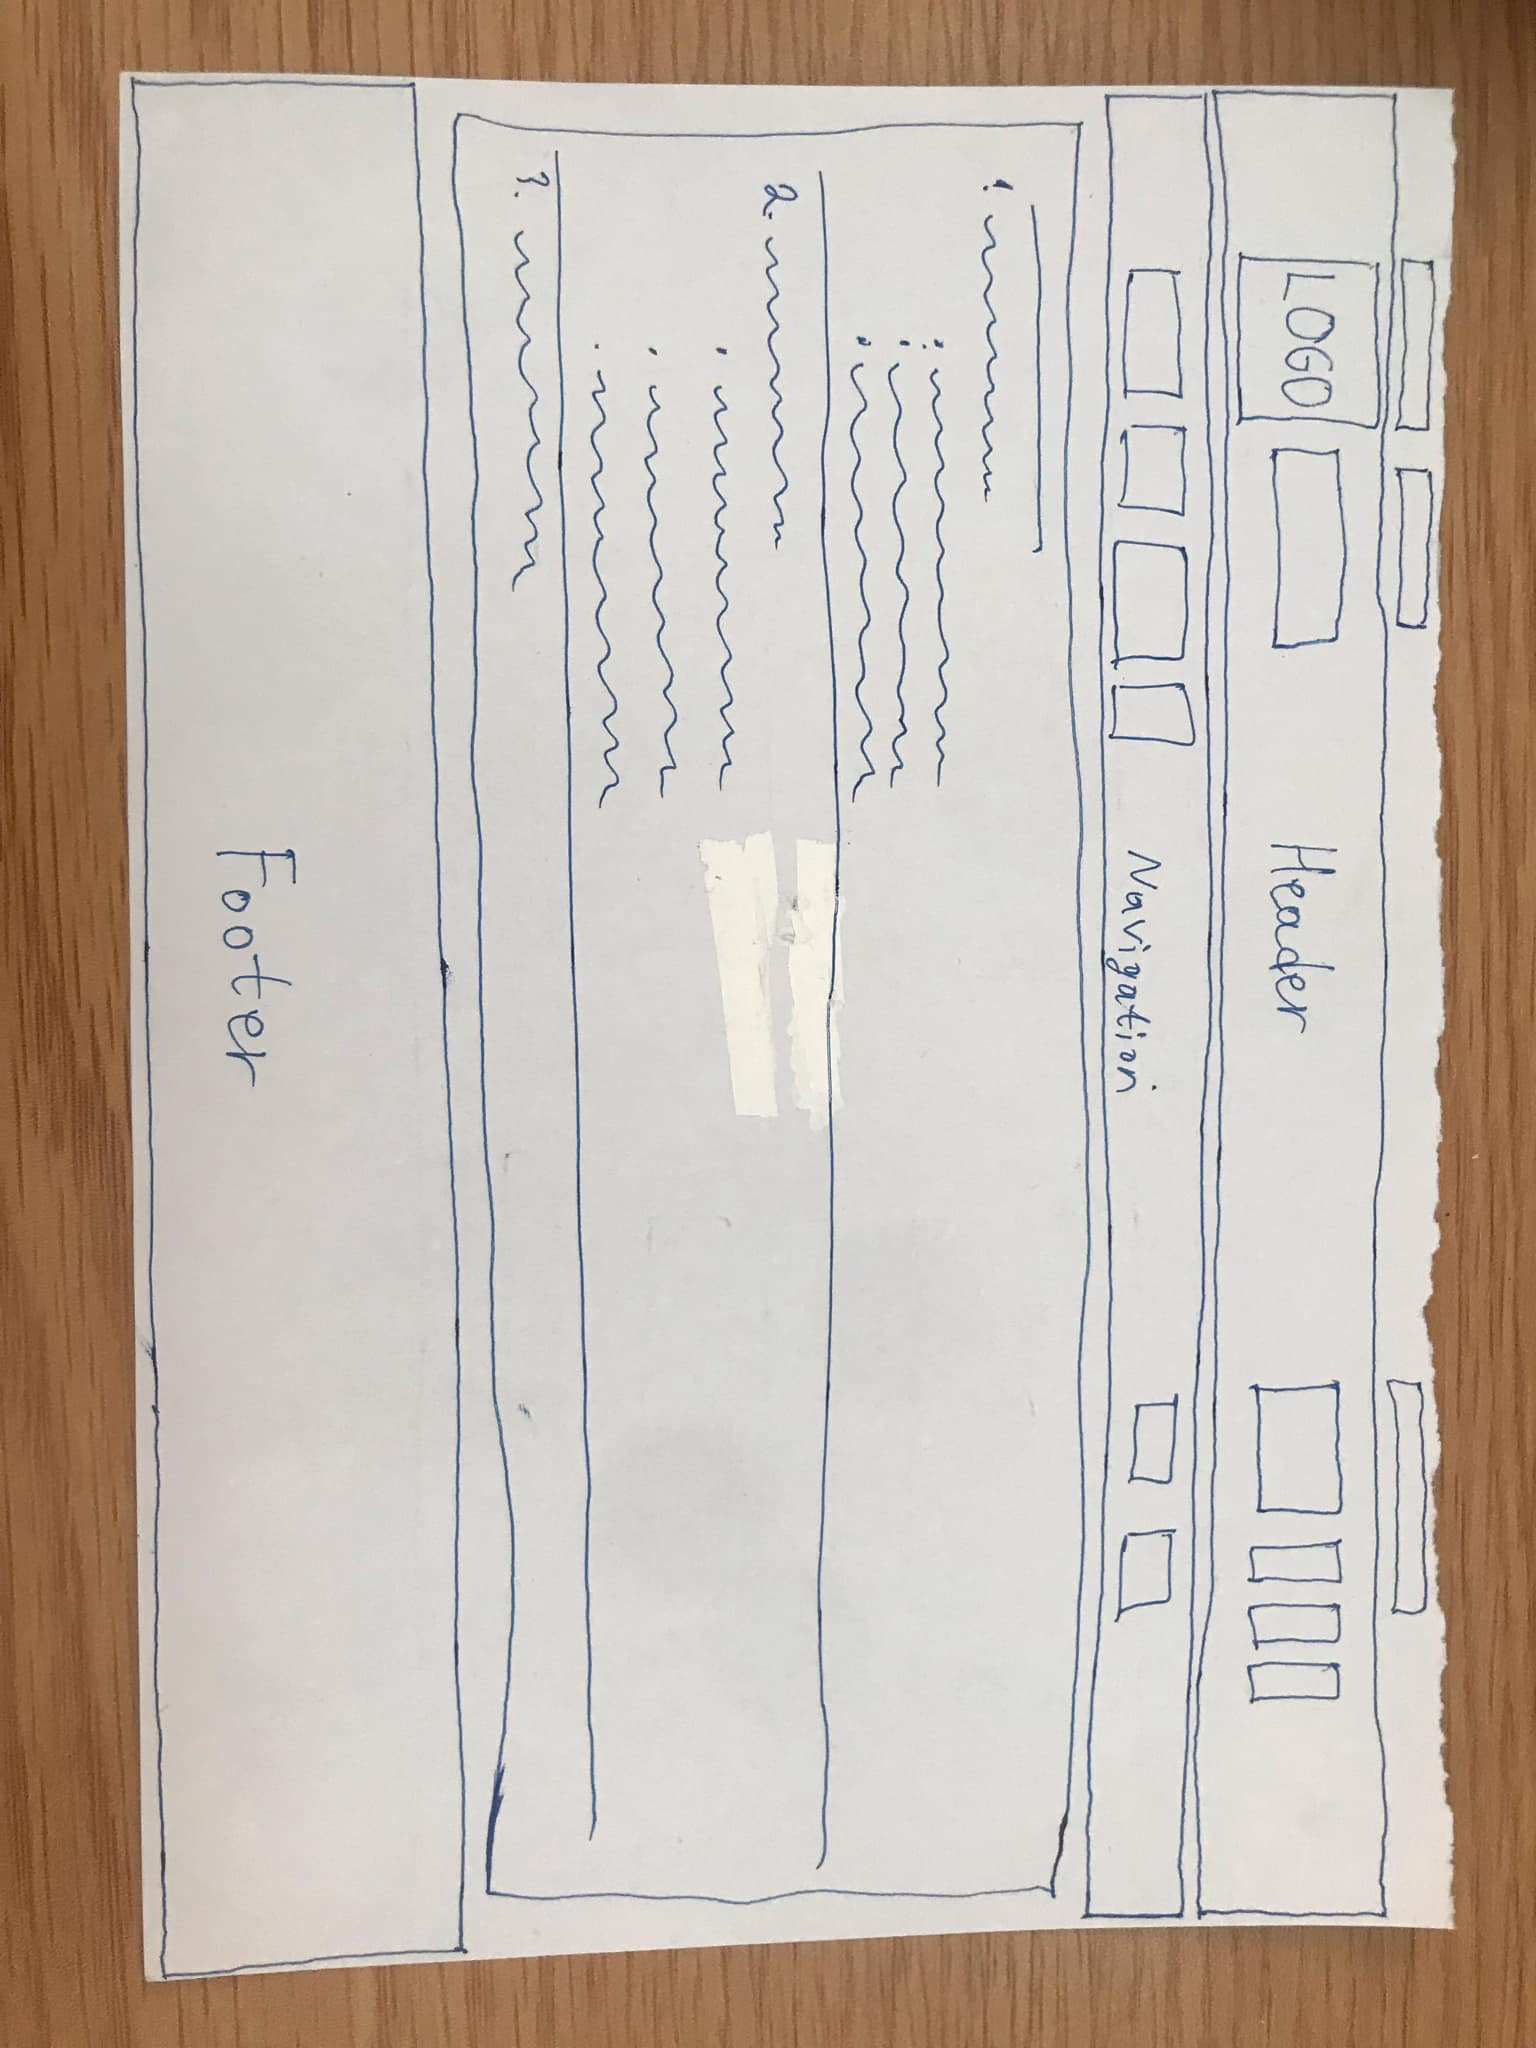 LOGO
Header
Navigation
1.
2.
3.
Footer